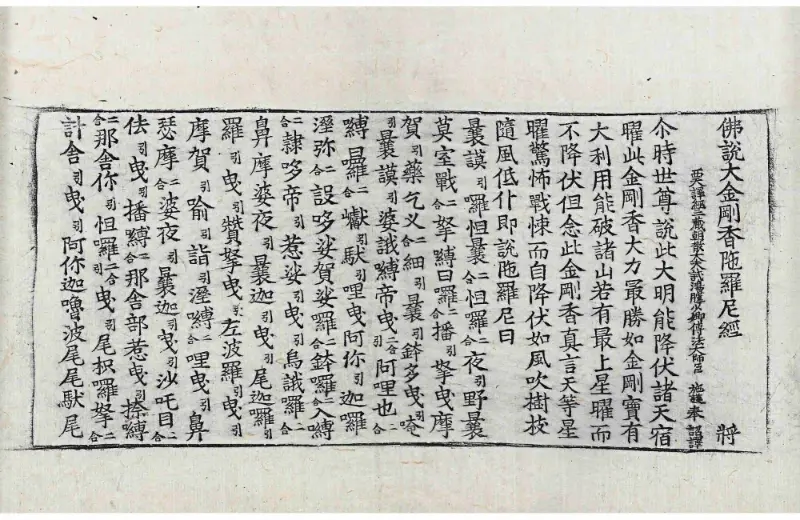 佛說大金剛香陁羅尼經 將
西天譯經三藏朝散大夫試鴻臚少卿傳法大師臣施護奉 詔譯
尒時世尊說此大明能降伏諸天宿
曜此金剛香大力最勝如金剛寶有
大利用能破諸山若有最上星曜而
不降伏但念此金剛香真言天等星
曜驚怖戰悚而自降伏如風吹樹枝
隨風低仆即說陁羅尼曰
曩謨引囉怛曩二合怛囉二合夜引野曩
莫室戰二合拏縛日囉二合播引拏曳摩
賀引藥乞叉二合細引曩引鉢多曳引唵
引曩謨引婆誐縛帝引曳二合阿哩也二合
縛日囉二合巘引馱引哩曳引阿你引迦囉
溼弥二合設哆娑賀娑囉二合鉢囉二合入縛
二合隷哆帝引惹娑引曳引烏誐囉二合
鼻摩婆夜引曩迦引曳引尾迦囉引
羅引曳引贊拏曳引左波羅引曳引
摩賀引喻引詣引溼縛二合哩曳引鼻
瑟摩二合婆夜引曩迦引曳引沙吒目二合
佉引曳引播縛二合那舍部惹曳引捺縛
二合那舍你引怛囉二合曳引尾枳囉拏二合
計舍引曳引阿你迦嚕波尾尾馱尾